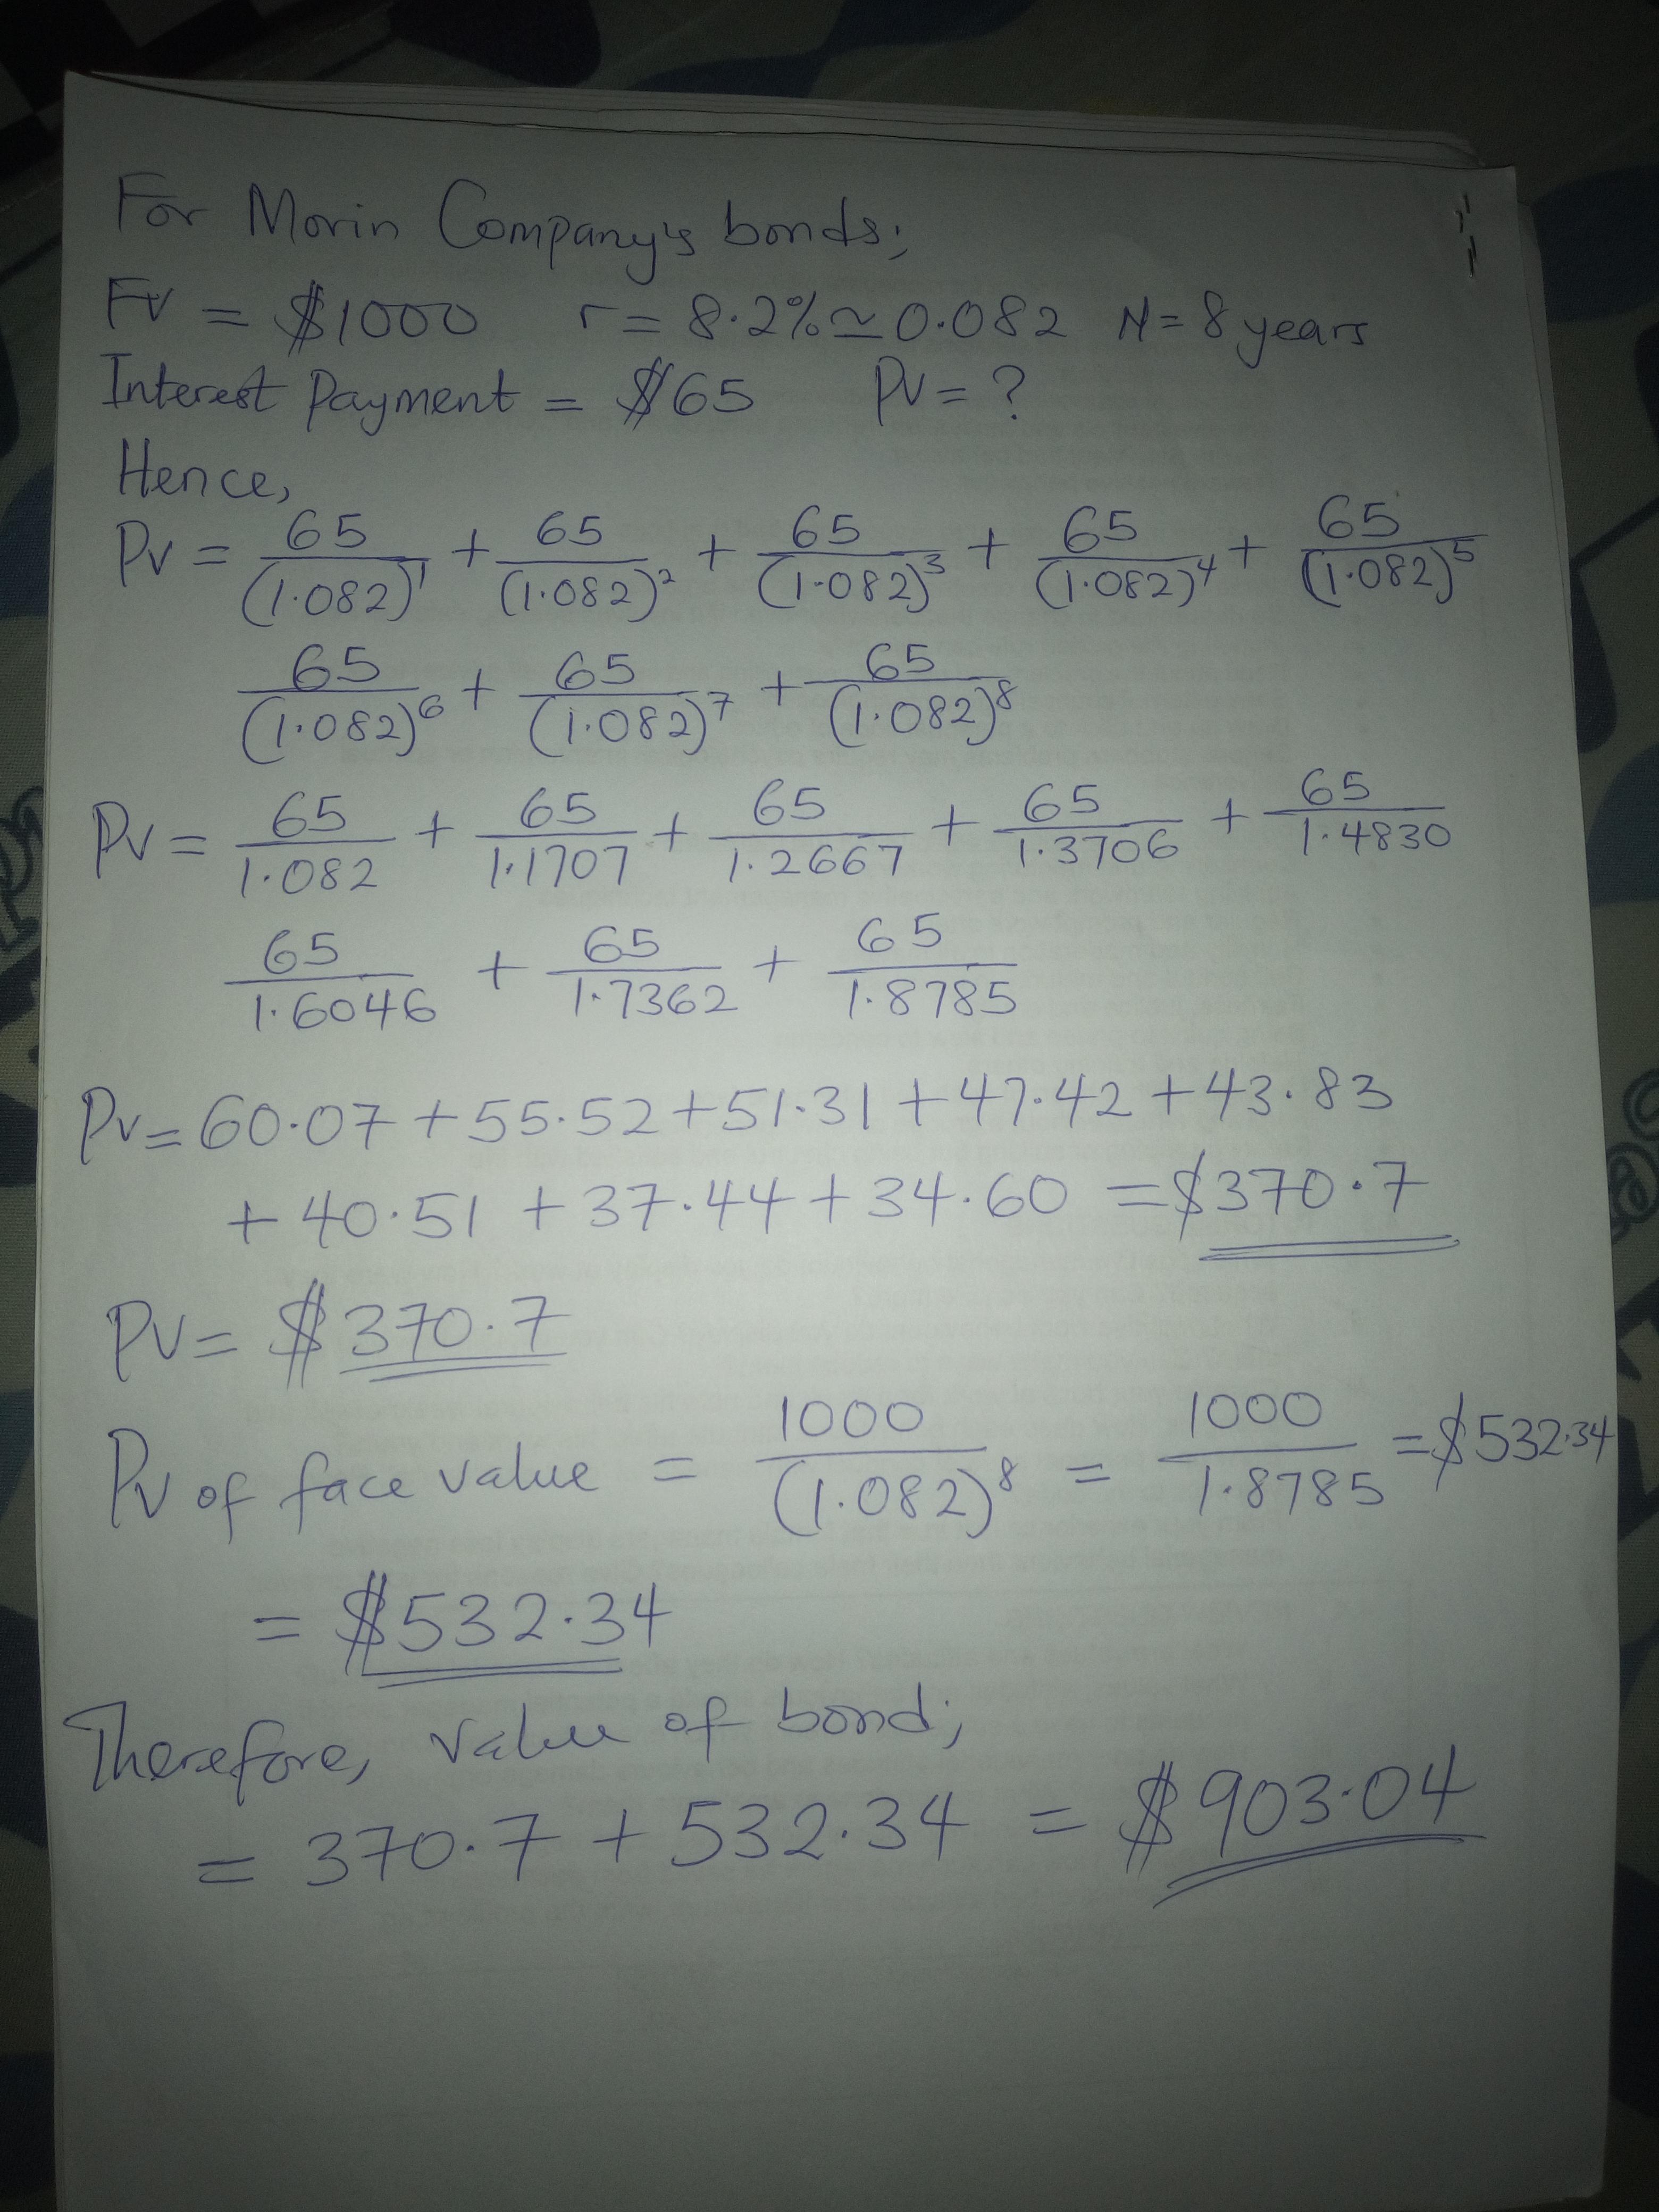 For Morin Company's bonds;
FV = $1000 r = 8.2% ≃ 0.082 N = 8 years
Interest Payment = $65 PV = ?
Hence,
PV = 65/(1.082)^1 + 65/(1.082)^2 + 65/(1.082)^3 + 65/(1.082)^4 + 65/(1.082)^5
65/(1.082)^6 + 65/(1.082)^7 + 65/(1.082)^8
PV = 65/1.082 + 65/1.1707 + 65/1.2667 + 65/1.3706 + 65/1.4830
65/1.6046 + 65/1.7362 + 65/1.8785
PV = 60.07 + 55.52 + 51.31 + 47.42 + 43.83
+ 40.51 + 37.44 + 34.60 = $370.7
PV = $370.7
PV of face value = 1000/(1.082)^8 = 1000/1.8785 = $532.34
= $532.34
Therefore, value of bond;
= 370.7 + 532.34 = $903.04